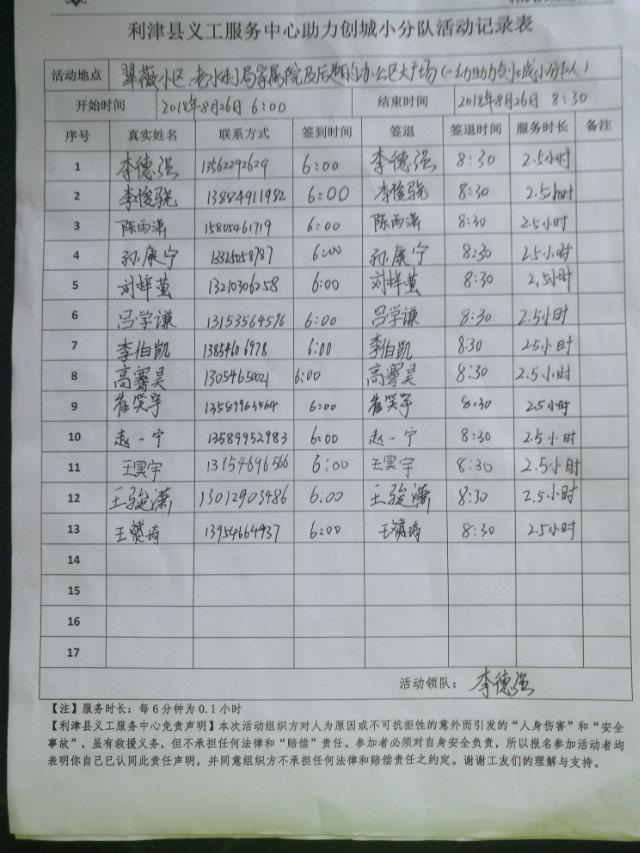 利津县义工服务中心助力创城小分队活动记录表
活动地点 翠薇小区、老水利局家属院及后题的办公区大广场(一幼助力创城小分队)
开始时间 2018年8月26日 6:00 结束时间 2018年8月26日 8:30
序号 真实姓名 联系方式 签到时间 签退 签退时间 服务时长 备注
1 李德强 13562292629 6:00 李德强 8:30 2.5小时
2 李俊骁 13884911982 6:00 李俊骁 8:30 2.5小时
3 陈雨潇 15805461719 6:00 陈雨潇 8:30 2.5小时
4 孙康宁 13325058787 6:00 孙康宁 8:30 2.5小时
5 刘梓萤 13210306258 6:00 刘梓萤 8:30 2.5小时
6 吕学谦 13153564576 6:00 吕学谦 8:30 2.5小时
7 李伯凯 13854606978 6:00 李伯凯 8:30 2.5小时
8 高骞昊 13054650021 6:00 高骞昊 8:30 2.5小时
9 崔笑宇 13589963564 6:00 崔笑宇 8:30 2.5小时
10 赵一宁 13589952983 6:00 赵一宁 8:30 2.5小时
11 王冥宇 13154696566 6:00 王冥宇 8:30 2.5小时
12 王骏潇 13012903486 6:00 王骏潇 8:30 2.5小时
13 王赟琦 13954664937 6:00 王赟琦 8:30 2.5小时
14
15
16
17
活动领队: 李德强
【注】服务时长:每6分钟为0.1小时
【利津县义工服务中心免责声明】本次活动组织方对人为原因或不可抗担性的意外而引发的“人身伤害”和“安全
事故”,虽有救援义务,但不承担任何法律和“赔偿”责任。参加者必须对自身安全负责,所以报名参加活动者均
表明你自己已认同此责任声明,并同意组织方不承担任何法律和赔偿责任之约定。谢谢工友们的理解与支持。